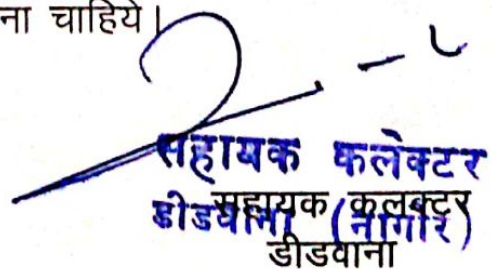 ना चाहिये।
सहायक कलेक्टर
डीडवाना (नागौर)
सहायक कलक्टर
डीडवाना